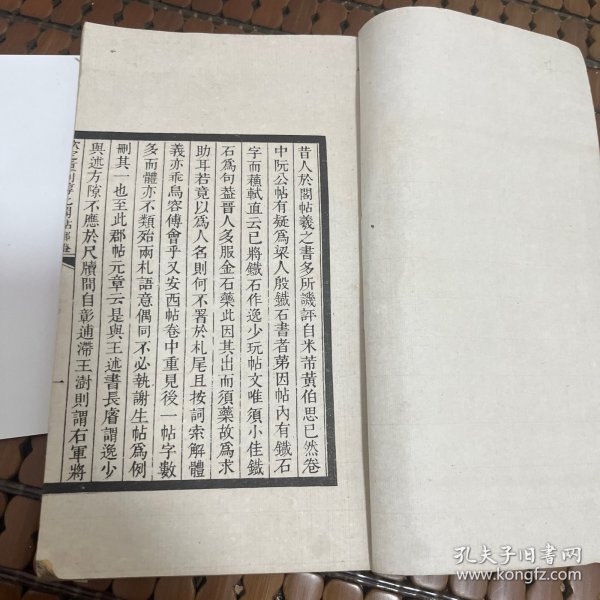 昔人於閣帖羲之書多所譏評自米芾黃伯思已然卷
中阮公帖有疑爲梁人殷鐵石書者第因帖內有鐵石
字而蘓軾直云已將鐵石作逸少玩帖文唯須小佳鐵
石爲句葢晉人多服金石藥此因其出而須藥故爲求
助耳若竟以爲人名則何不署於札尾且按詞索解體
義亦乖烏容傅會乎又安西帖卷中重見後一帖字數
多而體亦不類殆兩札語意偶同不必執謝生帖爲例
刪其一也至此郡帖元章云是與王述書長睿謂逸少
與述方隙不應於尺牘間自彰逋滯王澍則謂右軍將
一
孔夫子旧书网
www.kongfz.com